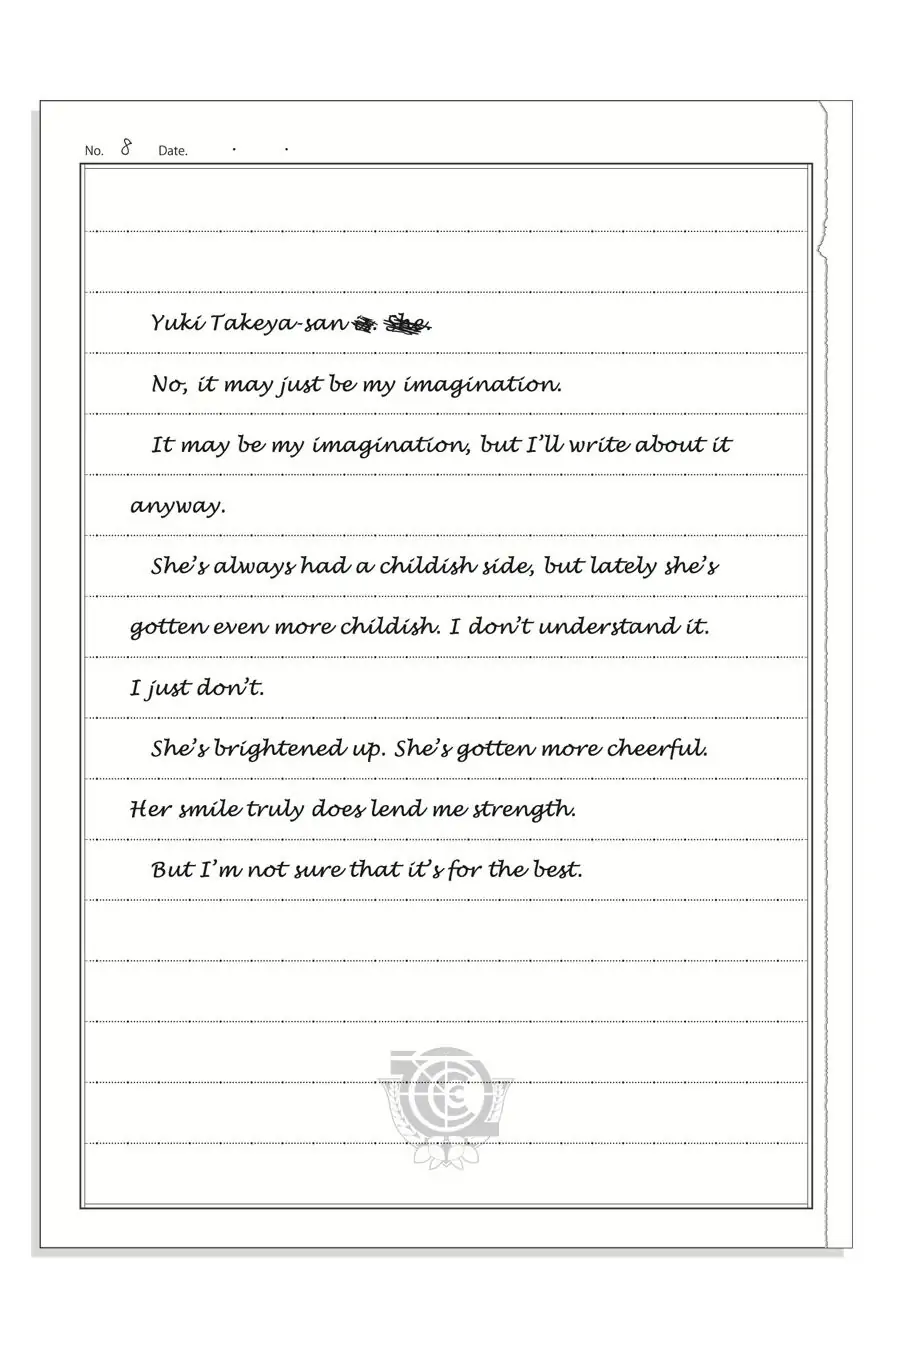 No. 8 Date. . .
Yuki Takeya-san is. She.
No, it may just be my imagination.
It may be my imagination, but I'll write about it
anyway.
She's always had a childish side, but lately she's
gotten even more childish. I don't understand it.
I just don't.
She's brightened up. She's gotten more cheerful.
Her smile truly does lend me strength.
But I'm not sure that it's for the best.